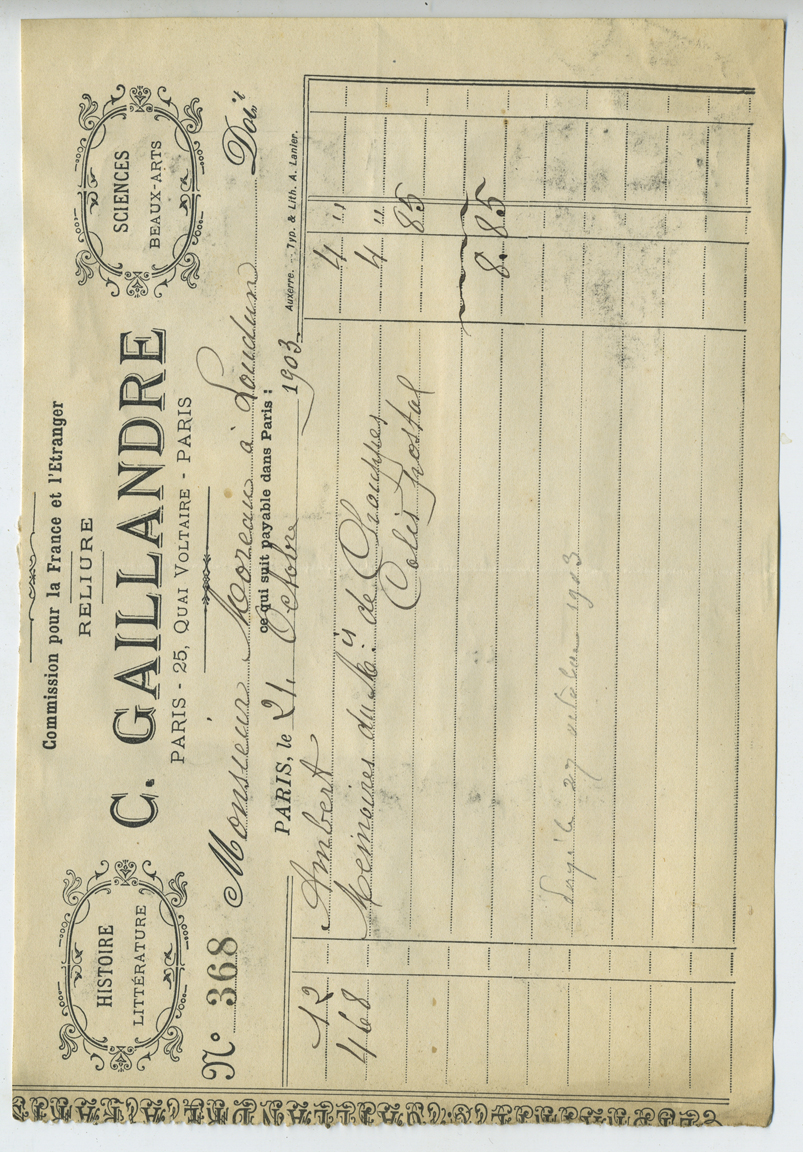 Commission pour la France et l'Etranger
RELIURE
HISTOIRE
LITTÉRATURE
C. GAILLANDRE
PARIS - 25, QUAI VOLTAIRE - PARIS
SCIENCES
BEAUX-ARTS
N° 368 Monsieur Moreau à Loudun Doit
ce qui suit payable dans Paris :
PARIS, le 21 Octobre 1903
Auxerre. - Typ. & Lith. A. Lanier.
12 Ambert 4 "
468 Memoires du Mis de Chouppes 4 "
Colis postal 85
8.85
Payé le 27 octobre 1903